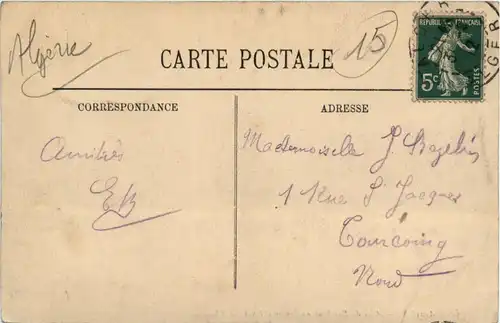 Algérie
15
CARTE POSTALE
REPUBLIQUE FRANÇAISE
5c POSTES
CORRESPONDANCE
ADRESSE
Amitiés
EB
Mademoiselle J.
1 Rue St Jacques
Tourcoing
Nord